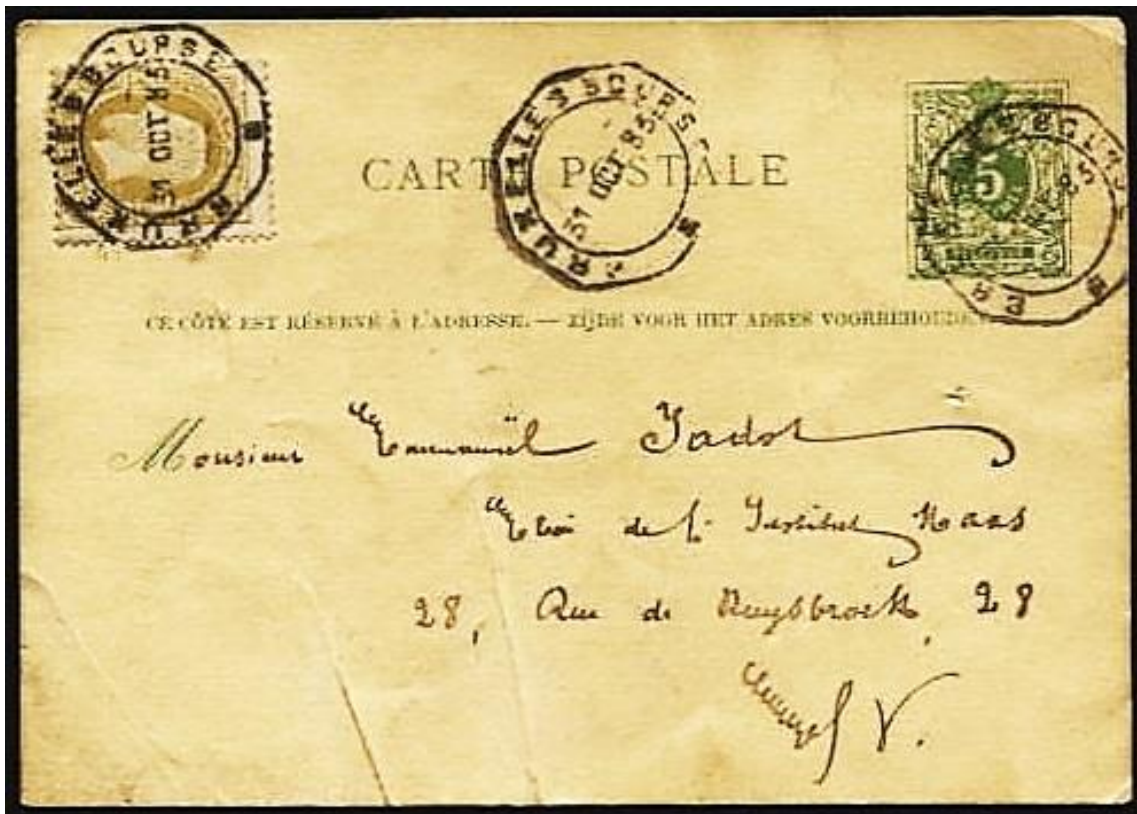 BRUXELLES BOURSE
31 OCT 85
CARTE POSTALE
BRUXELLES BOURSE
31 OCT 85
5
CE CÔTÉ EST RÉSERVÉ À L'ADRESSE. — ZIJDE VOOR HET ADRES VOORBEHOUDEN.
Monsieur Emmanuël Jadot
de l'Institut
28, Rue de Ruysbroeck, 28